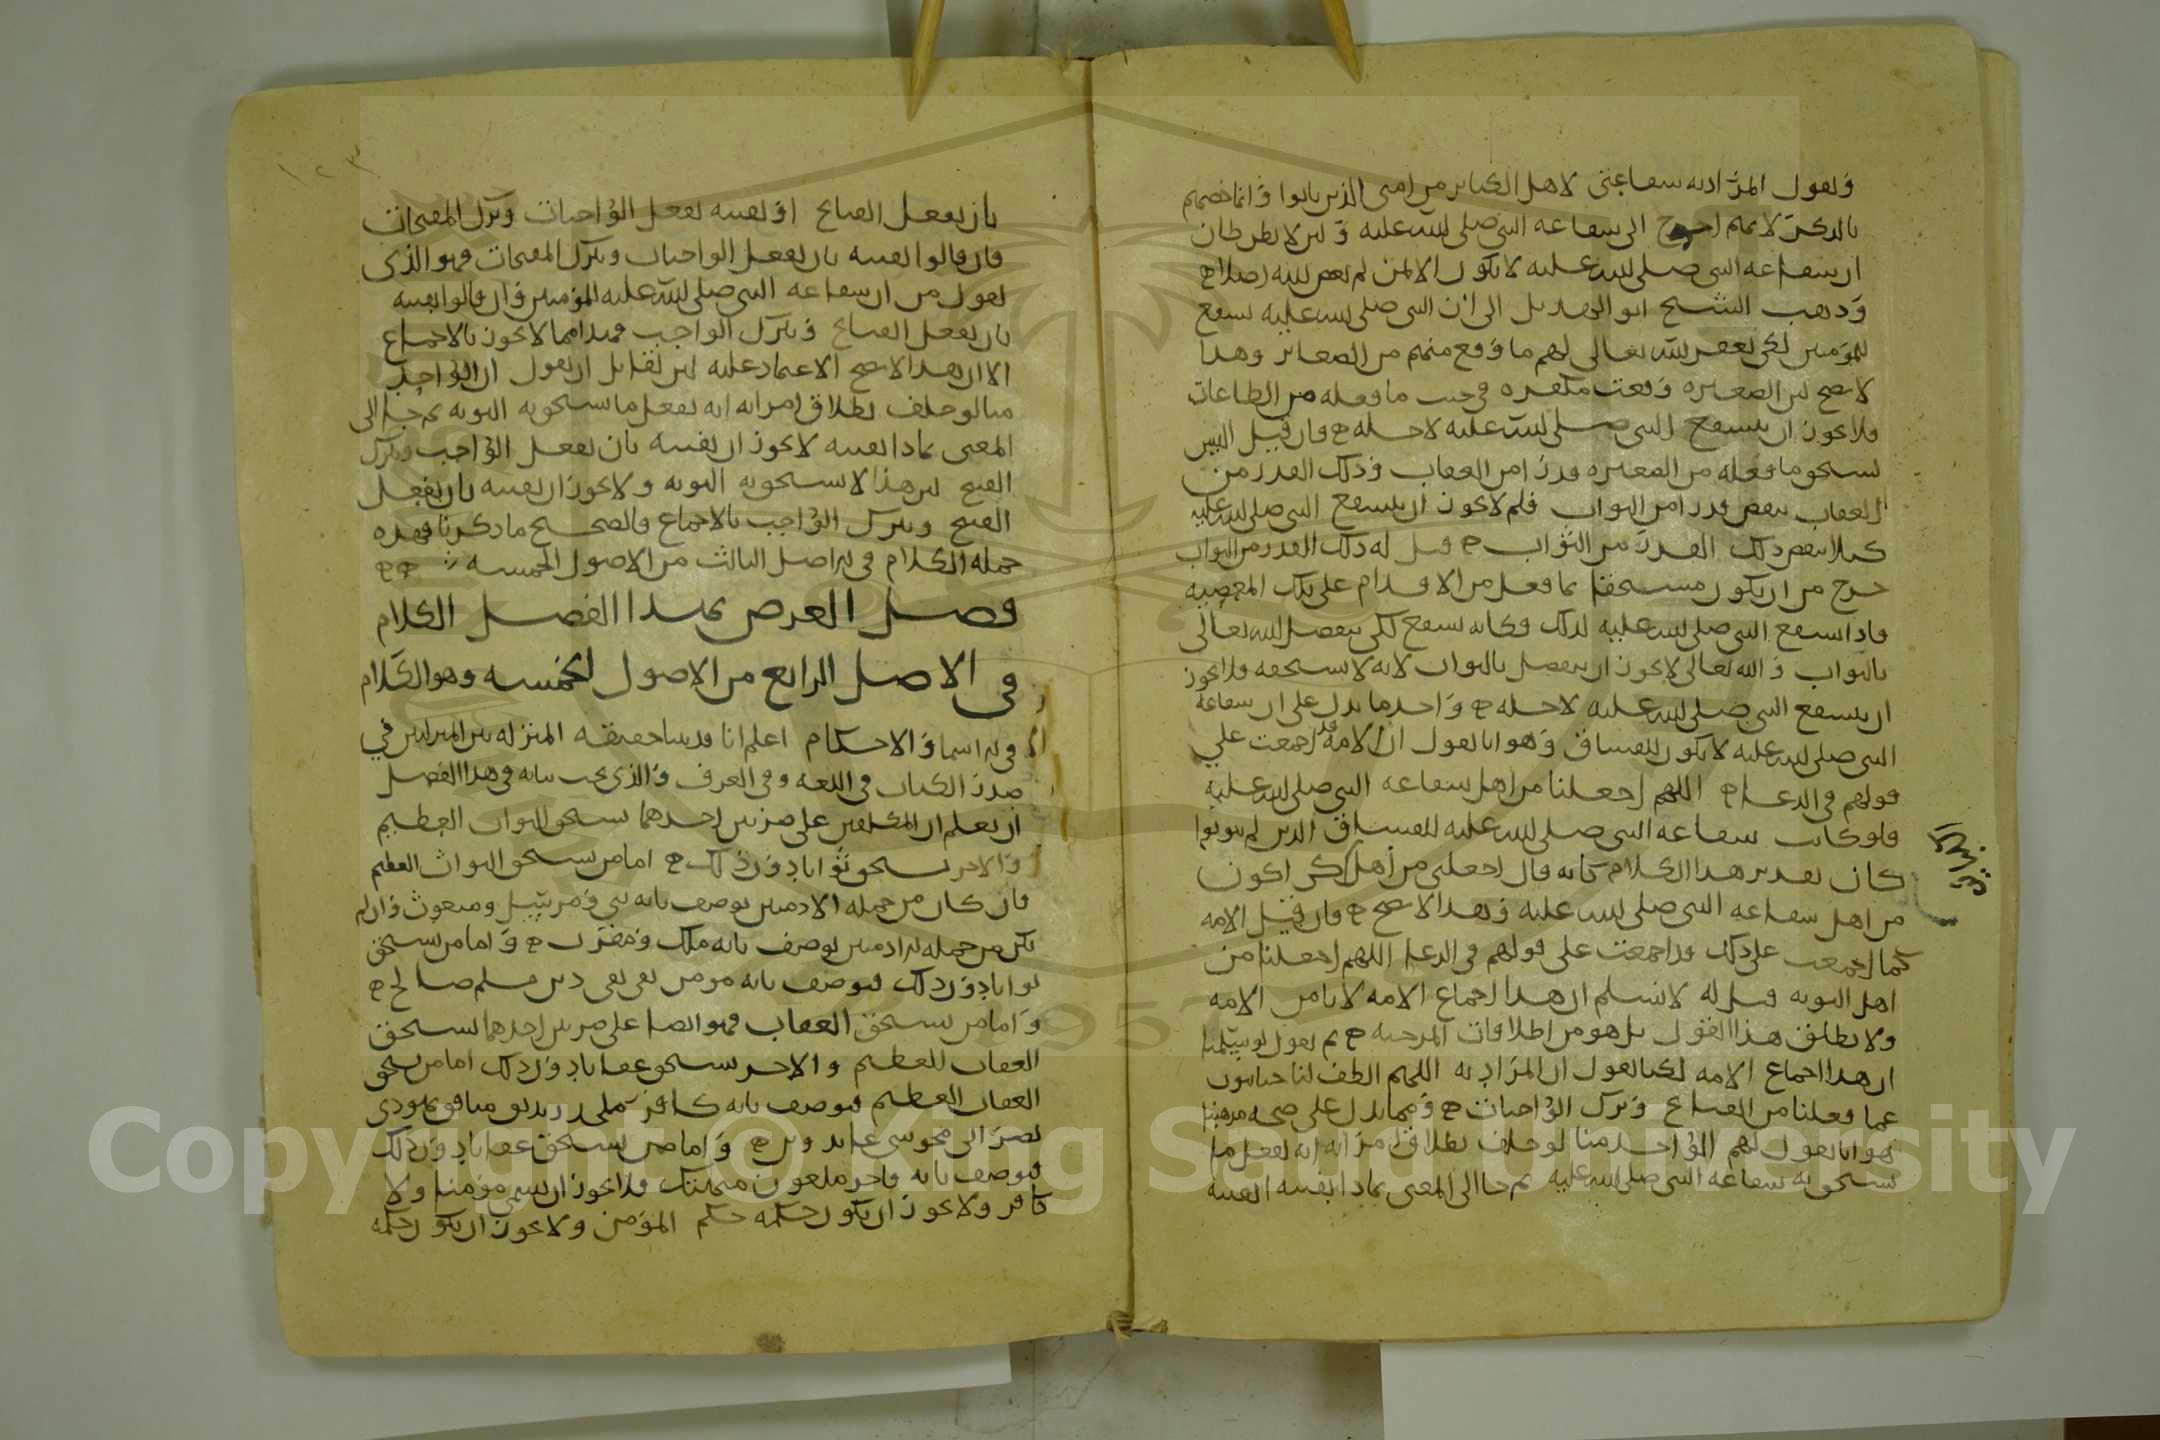 ونقول المراد به شفاعتي لاهل الكبائر من امتي الذين تابوا وانما خصهم
بالذكر لانهم احوج الى شفاعة النبي صلى الله عليه
ان شفاعة النبي صلى الله عليه لا يكون الا لمن
وذهب الشيخ ابو الهذيل الى ان النبي صلى الله عليه يشفع
للمؤمنين لكي يغفر الله تعالى لهم ما وقع منهم من الصغائر وهذا
لا يصح لان الصغيره وقعت مكفره في جنب ما فعله من الطاعات
فلا يجوز ان يشفع النبي صلى الله عليه لاجله فان قيل اليس
يستحق ما فعله من الصغيره قدرا من العقاب وذلك القدر من
العقاب ينقص قدرا من الثواب فلم لا يجوز ان يشفع النبي صلى الله عليه
كيلا ينقص ذلك القدر من الثواب قيل له ذلك القدر من الثواب
خرج من ان يكون مستحقا بما فعل من الاقدام على تلك المعصيه
فاذا شفع النبي صلى الله عليه لذلك فكانه شفع لكي يتفضل الله تعالى
بالثواب والله تعالى لا يجوز ان يتفضل بالثواب لانه لا يستحقه فلا يجوز
ان يشفع النبي صلى الله عليه لاجله واحد ما يدل على ان شفاعة
النبي صلى الله عليه لا يكون للفساق وهو انا نقول ان الامه قد اجمعت على
قولهم في الدعا اللهم اجعلنا من اهل شفاعة النبي صلى الله عليه
فلو كانت شفاعة النبي صلى الله عليه للفساق الذين لم يتوبوا
كان تقدير هذا الكلام كانه قال اجعلني من اهل الكبائر اكون
من اهل شفاعة النبي صلى الله عليه وهذا لا يصح فان قيل الامه
كما اجمعت على ذلك قد اجمعت على قولهم في الدعا اللهم اجعلنا من
اهل التوبه قيل له لا نسلم ان هذا اجماع الامه لانا من الامه
ولا نطلق هذا القول بل هو من اطلاقات المرجئه ثم نقول لو سلمنا
ان هذا اجماع الامه لكنا نقول ان المراد به اللهم الطف لنا
عما فعلنا من القبائح وترك الواجبات ومما يدل على صحة مذهبنا
هو انا نقول لهم الواحد منا لو حلف بطلاق امراته انه يفعل ما
يستحق به شفاعة النبي صلى الله عليه ثم جا الى المفتي بماذا يفتيه ايفتيه
بان يفعل القبائح او يفتيه بفعل الواجبات وترك المقبحات
فان قالوا يفتيه بان يفعل الواجبات ويترك المقبحات فهو الذي
نقول من ان شفاعة النبي صلى الله عليه للمؤمنين وان قالوا يفتيه
بان يفعل القبائح ويترك الواجب فهذا مما لا يجوز بالاجماع
الا ان هذا لا يصح الاعتماد عليه لان لقائل ان يقول ان الواحد
منا لو حلف بطلاق امراته انه يفعل ما يستحق به التوبه ثم جا الى
المفتي بماذا يفتيه لا يجوز ان يفتيه بان يفعل الواجب ويترك
القبيح لان هذا لا يستحق به التوبه ولا يجوز ان يفتيه بان يفعل
القبيح ويترك الواجب بالاجماع فالصحيح ما ذكرنا فهذه
جملة الكلام في الاصل الثالث من الاصول الخمسه
فصل الغرض بهذا الفصل الكلام
في الاصل الرابع من الاصول الخمسه وهو الكلام
في الاسما والاحكام اعلم انا قد بينا حقيقة المنزله بين المنزلتين في
صدر الكتاب في اللغه وفي العرف والذي يجب بيانه في هذا الفصل
ان يعلم ان المكلفين على ضربين احدهما يستحق الثواب العظيم
والاخر يستحق ثوابا دون ذلك اما من يستحق الثواب العظيم
فان كان من جملة الادميين يوصف بانه نبي ومرسل ومبعوث وان لم
يكن من جملة الادميين يوصف بانه ملك ومقرب واما من يستحق
ثوابا دون ذلك فيوصف بانه مؤمن تقي نقي دين مسلم صالح
واما من يستحق العقاب فهو ايضا على ضربين احدهما يستحق
العقاب العظيم والاخر يستحق عقابا دون ذلك اما من يستحق
العقاب العظيم فيوصف بانه كافر ملحد زنديق منافق يهودي
نصراني مجوسي عابد وثن واما من يستحق عقابا دون ذلك
فيوصف بانه فاجر ملعون متهتك فلا يجوز ان يسمى مؤمنا ولا
كافر ولا يجوز ان يكون حكمه حكم المؤمن ولا يجوز ان يكون حكمه
١٢٣
Copyright © King Saud University
1957